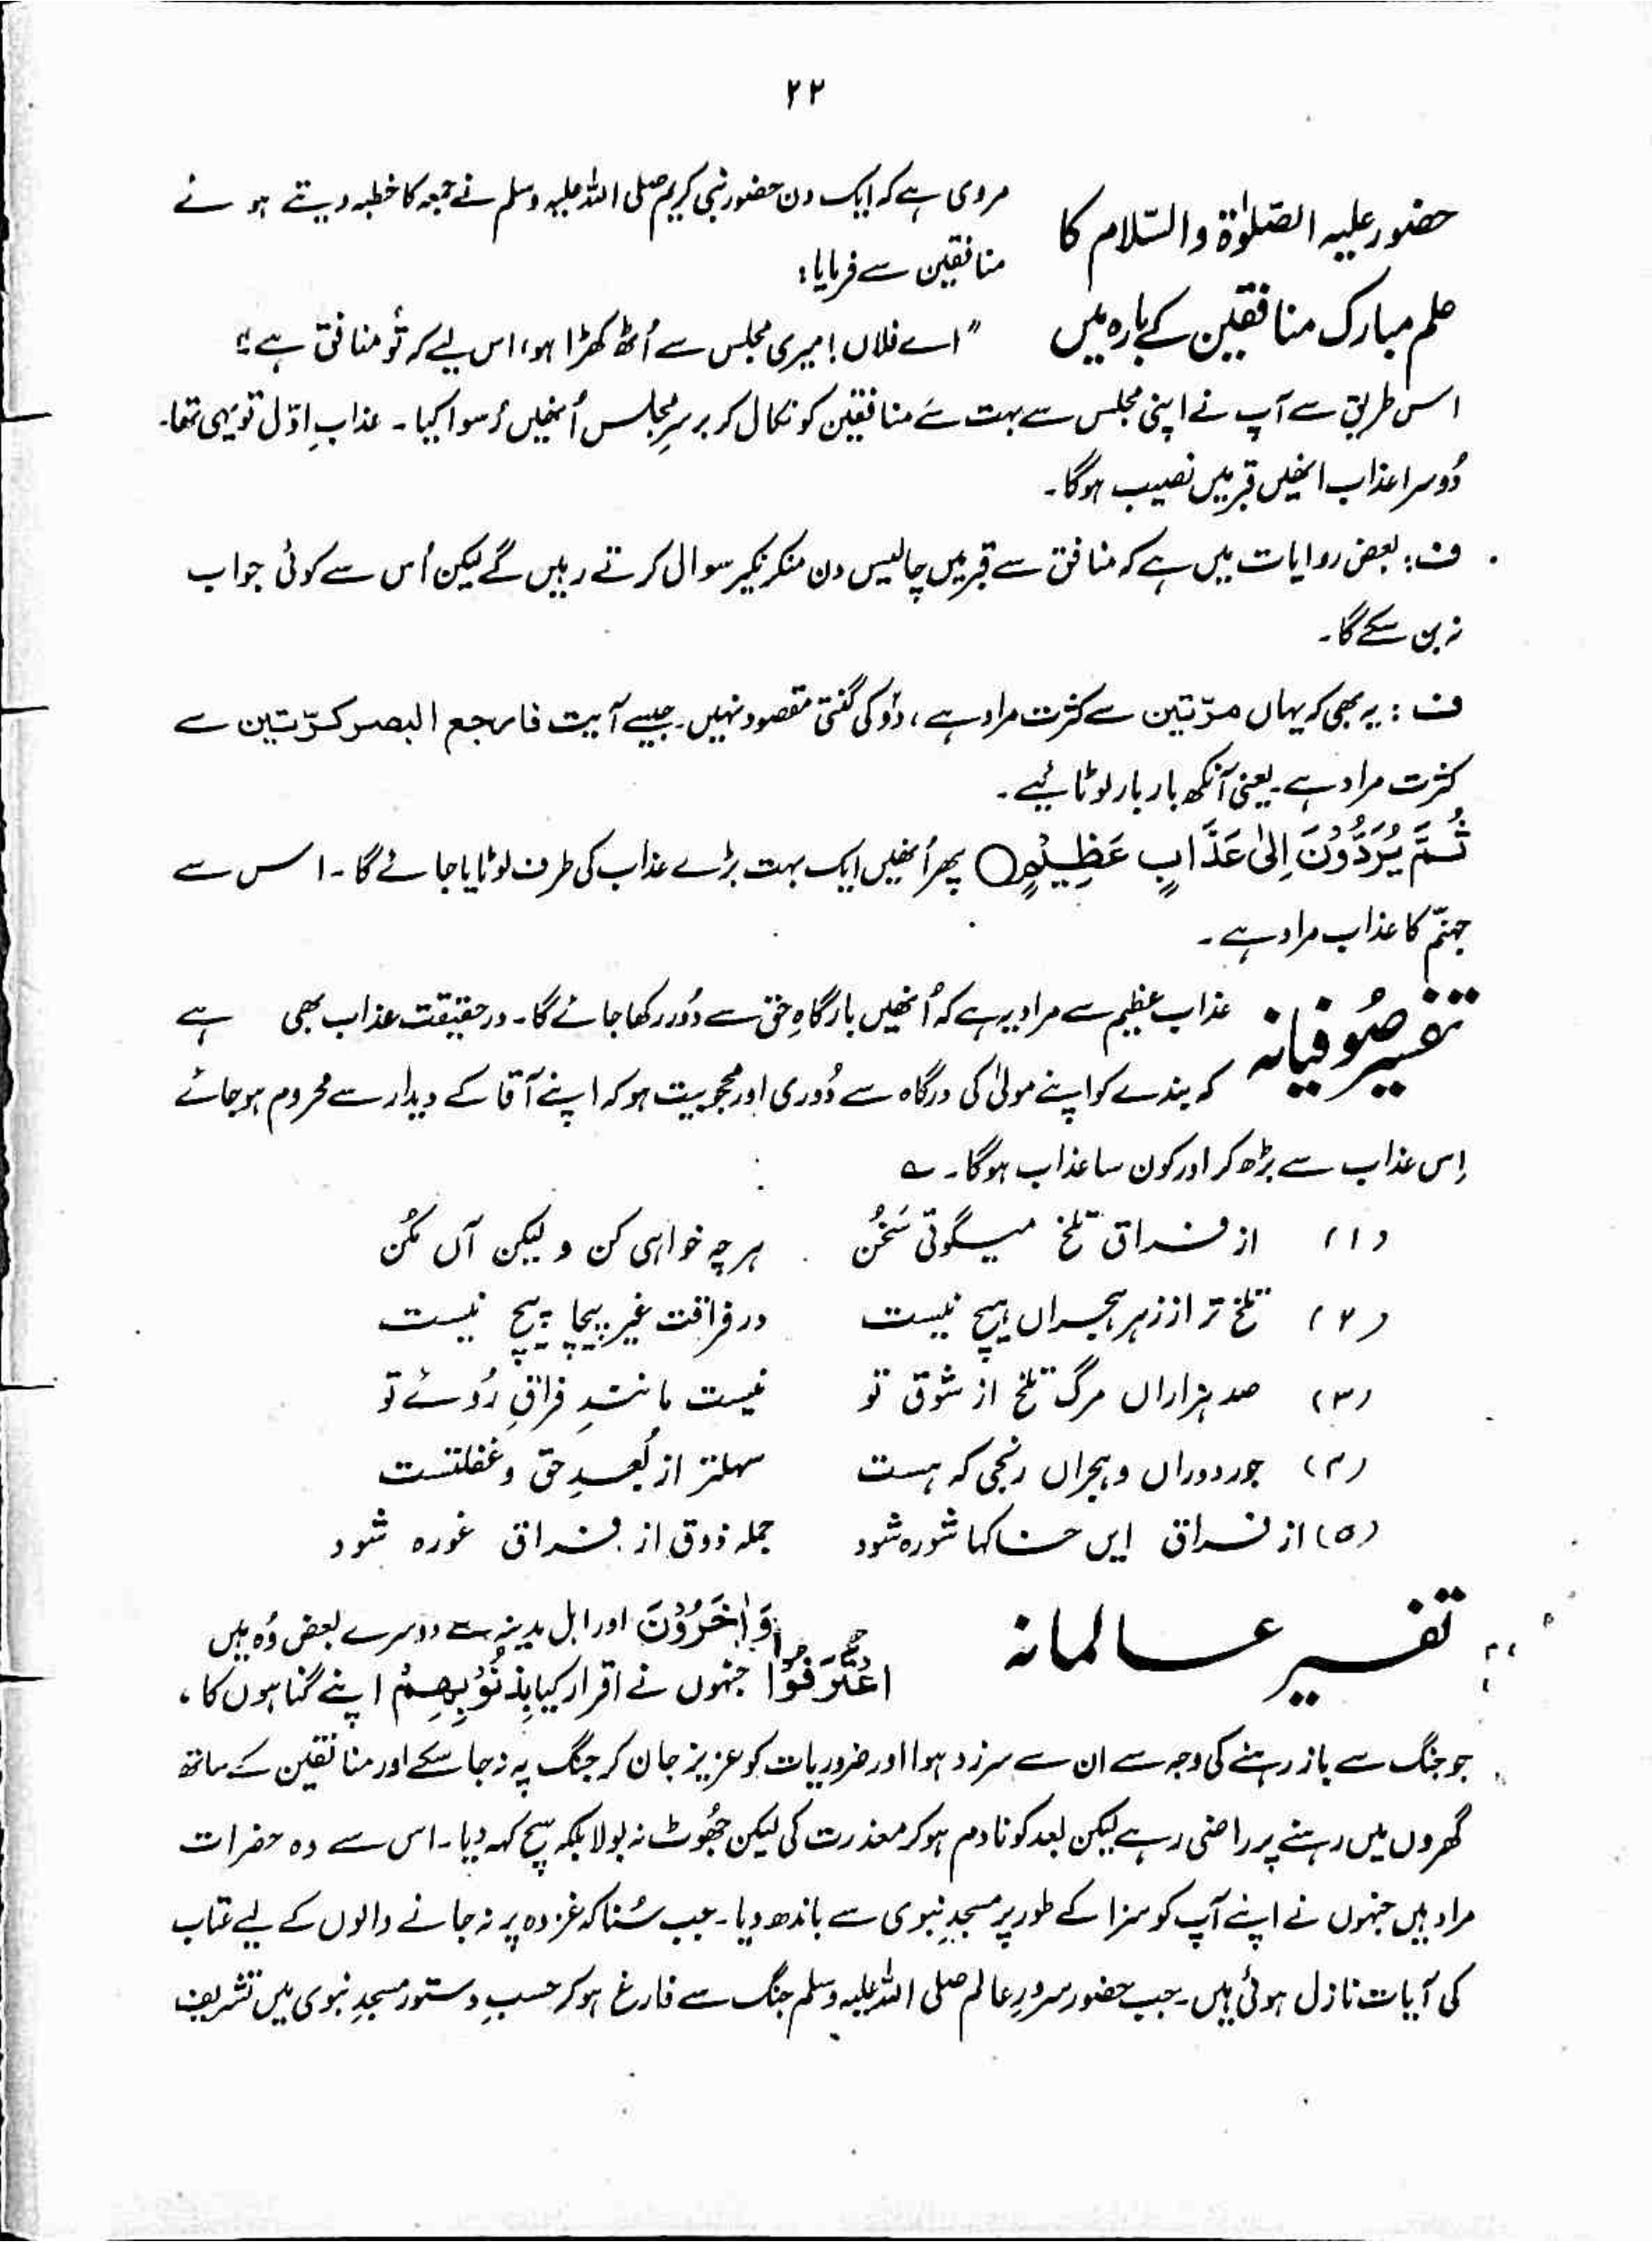 ۲۲
حضور علیہ الصّلوٰۃ والسّلام کا
علم مبارک منافقین کے بارہ میں
مروی ہے کہ ایک دن حضور نبی کریم صلی اللہ علیہ وسلم نے جمعہ کا خطبہ دیتے ہوئے
منافقین سے فرمایا:
"اے فلاں! میری مجلس سے اُٹھ کھڑا ہو، اس لیے کہ تُو منافق ہے"
اس طریق سے آپ نے اپنی مجلس سے بہت سے منافقین کو نکال کر برسرِ مجلس اُنھیں رُسوا کیا۔ عذابِ اوّل تو یہی تھا۔
دُوسرا عذاب انھیں قبر میں نصیب ہوگا۔
ف: بعض روایات میں ہے کہ منافق سے قبر میں چالیس دن منکر نکیر سوال کرتے رہیں گے لیکن اُس سے کوئی جواب
نہ بن سکے گا۔
ف: یہ بھی کہ یہاں مرّتین سے کثرت مراد ہے، دَو کی گنتی مقصود نہیں۔ جیسے آیت فارجع البصر کرّتین سے
کثرت مراد ہے۔ یعنی آنکھ بار بار لوٹائیے۔
ثُمَّ يُرَدُّوْنَ اِلٰى عَذَابٍ عَظِيْمٍ ○ پھر اُنھیں ایک بہت بڑے عذاب کی طرف لوٹایا جائے گا۔ اس سے
جہنّم کا عذاب مراد ہے۔
تفسیر صُوفیانہ
عذاب عظیم سے مراد یہ ہے کہ اُنھیں بارگاہِ حق سے دُور رکھا جائے گا۔ درحقیقت عذاب بھی ہے
کہ بندے کو اپنے مولیٰ کی درگاہ سے دُوری اور محجوبیت ہو کہ اپنے آقا کے دیدار سے محروم ہوجائے
اِس عذاب سے بڑھ کر اور کون سا عذاب ہوگا۔ ؎
(۱) از فراق تلخ میگوئی سَخُن ہر چہ خواہی کن و لیکن آں مکُن
(۲) تلخ تر از زہر ہجراں ہیچ نیست در فراقت غیر پیچا پیچ نیست
(۳) صد ہزاراں مرگ تلخ از شوق تو نیست مانندِ فراقِ رُوئے تو
(۴) جور دوراں و ہجراں رنجی کہ ہست سہلتر از بُعدِ حق و غفلتست
(۵) از فراق ایں خاکہا شورہ شود جملہ ذوق از فراق غورہ شود
تفسیر عالمانہ
وَاٰخَرُوْنَ اور اہل مدینہ سے دوسرے بعض وُہ ہیں
اعْتَرَفُوْا جنہوں نے اقرار کیا بِذُنُوْبِهِمْ اپنے گناہوں کا،
جو جنگ سے باز رہنے کی وجہ سے ان سے سرزد ہوا اور ضروریات کو عزیز جان کر جنگ پہ نہ جاسکے اور منافقین کے ساتھ
گھروں میں رہنے پر راضی رہے لیکن بعد کو نادم ہو کر معذرت کی لیکن جُھوٹ نہ بولا بلکہ سچ کہہ دیا۔ اس سے وہ حضرات
مراد ہیں جنہوں نے اپنے آپ کو سزا کے طور پر مسجدِ نبوی سے باندھ دیا۔ جب سُنا کہ غزوہ پر نہ جانے والوں کے لیے عتاب
کی آیات نازل ہوئی ہیں۔ جب حضور سرورِ عالم صلی اللہ علیہ وسلم جنگ سے فارغ ہو کر حسبِ دستور مسجدِ نبوی میں تشریف